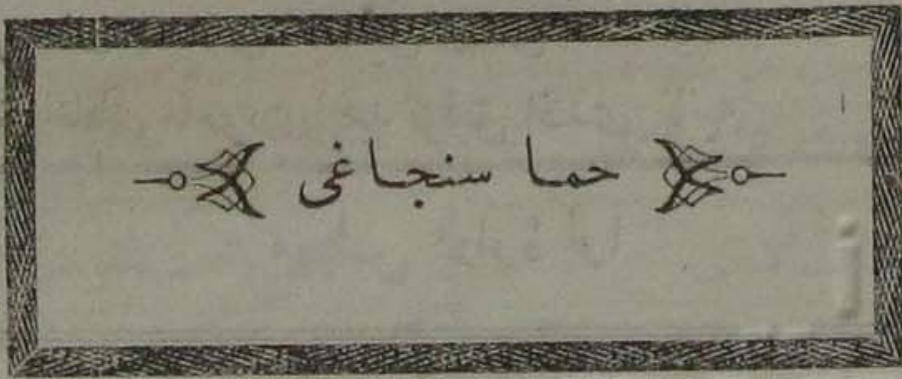 حما سنجاغی